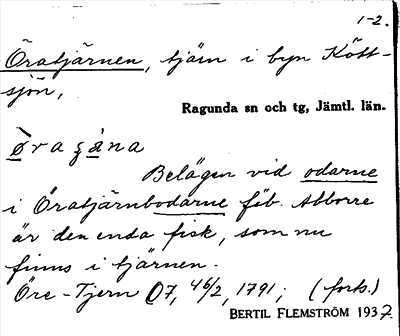 1-2.
Öratjärnen, tjärn i byn Kött-
sjön,
Ragunda sn och tg, Jämtl. län.
Belägen vid odarne
i Öratjärnbodarne fäb. Abborre
är den enda fisk, som nu
finns i tjärnen.
Öre-Tjern 07, 46/2, 1791; (forts.)
BERTIL FLEMSTRÖM 1937